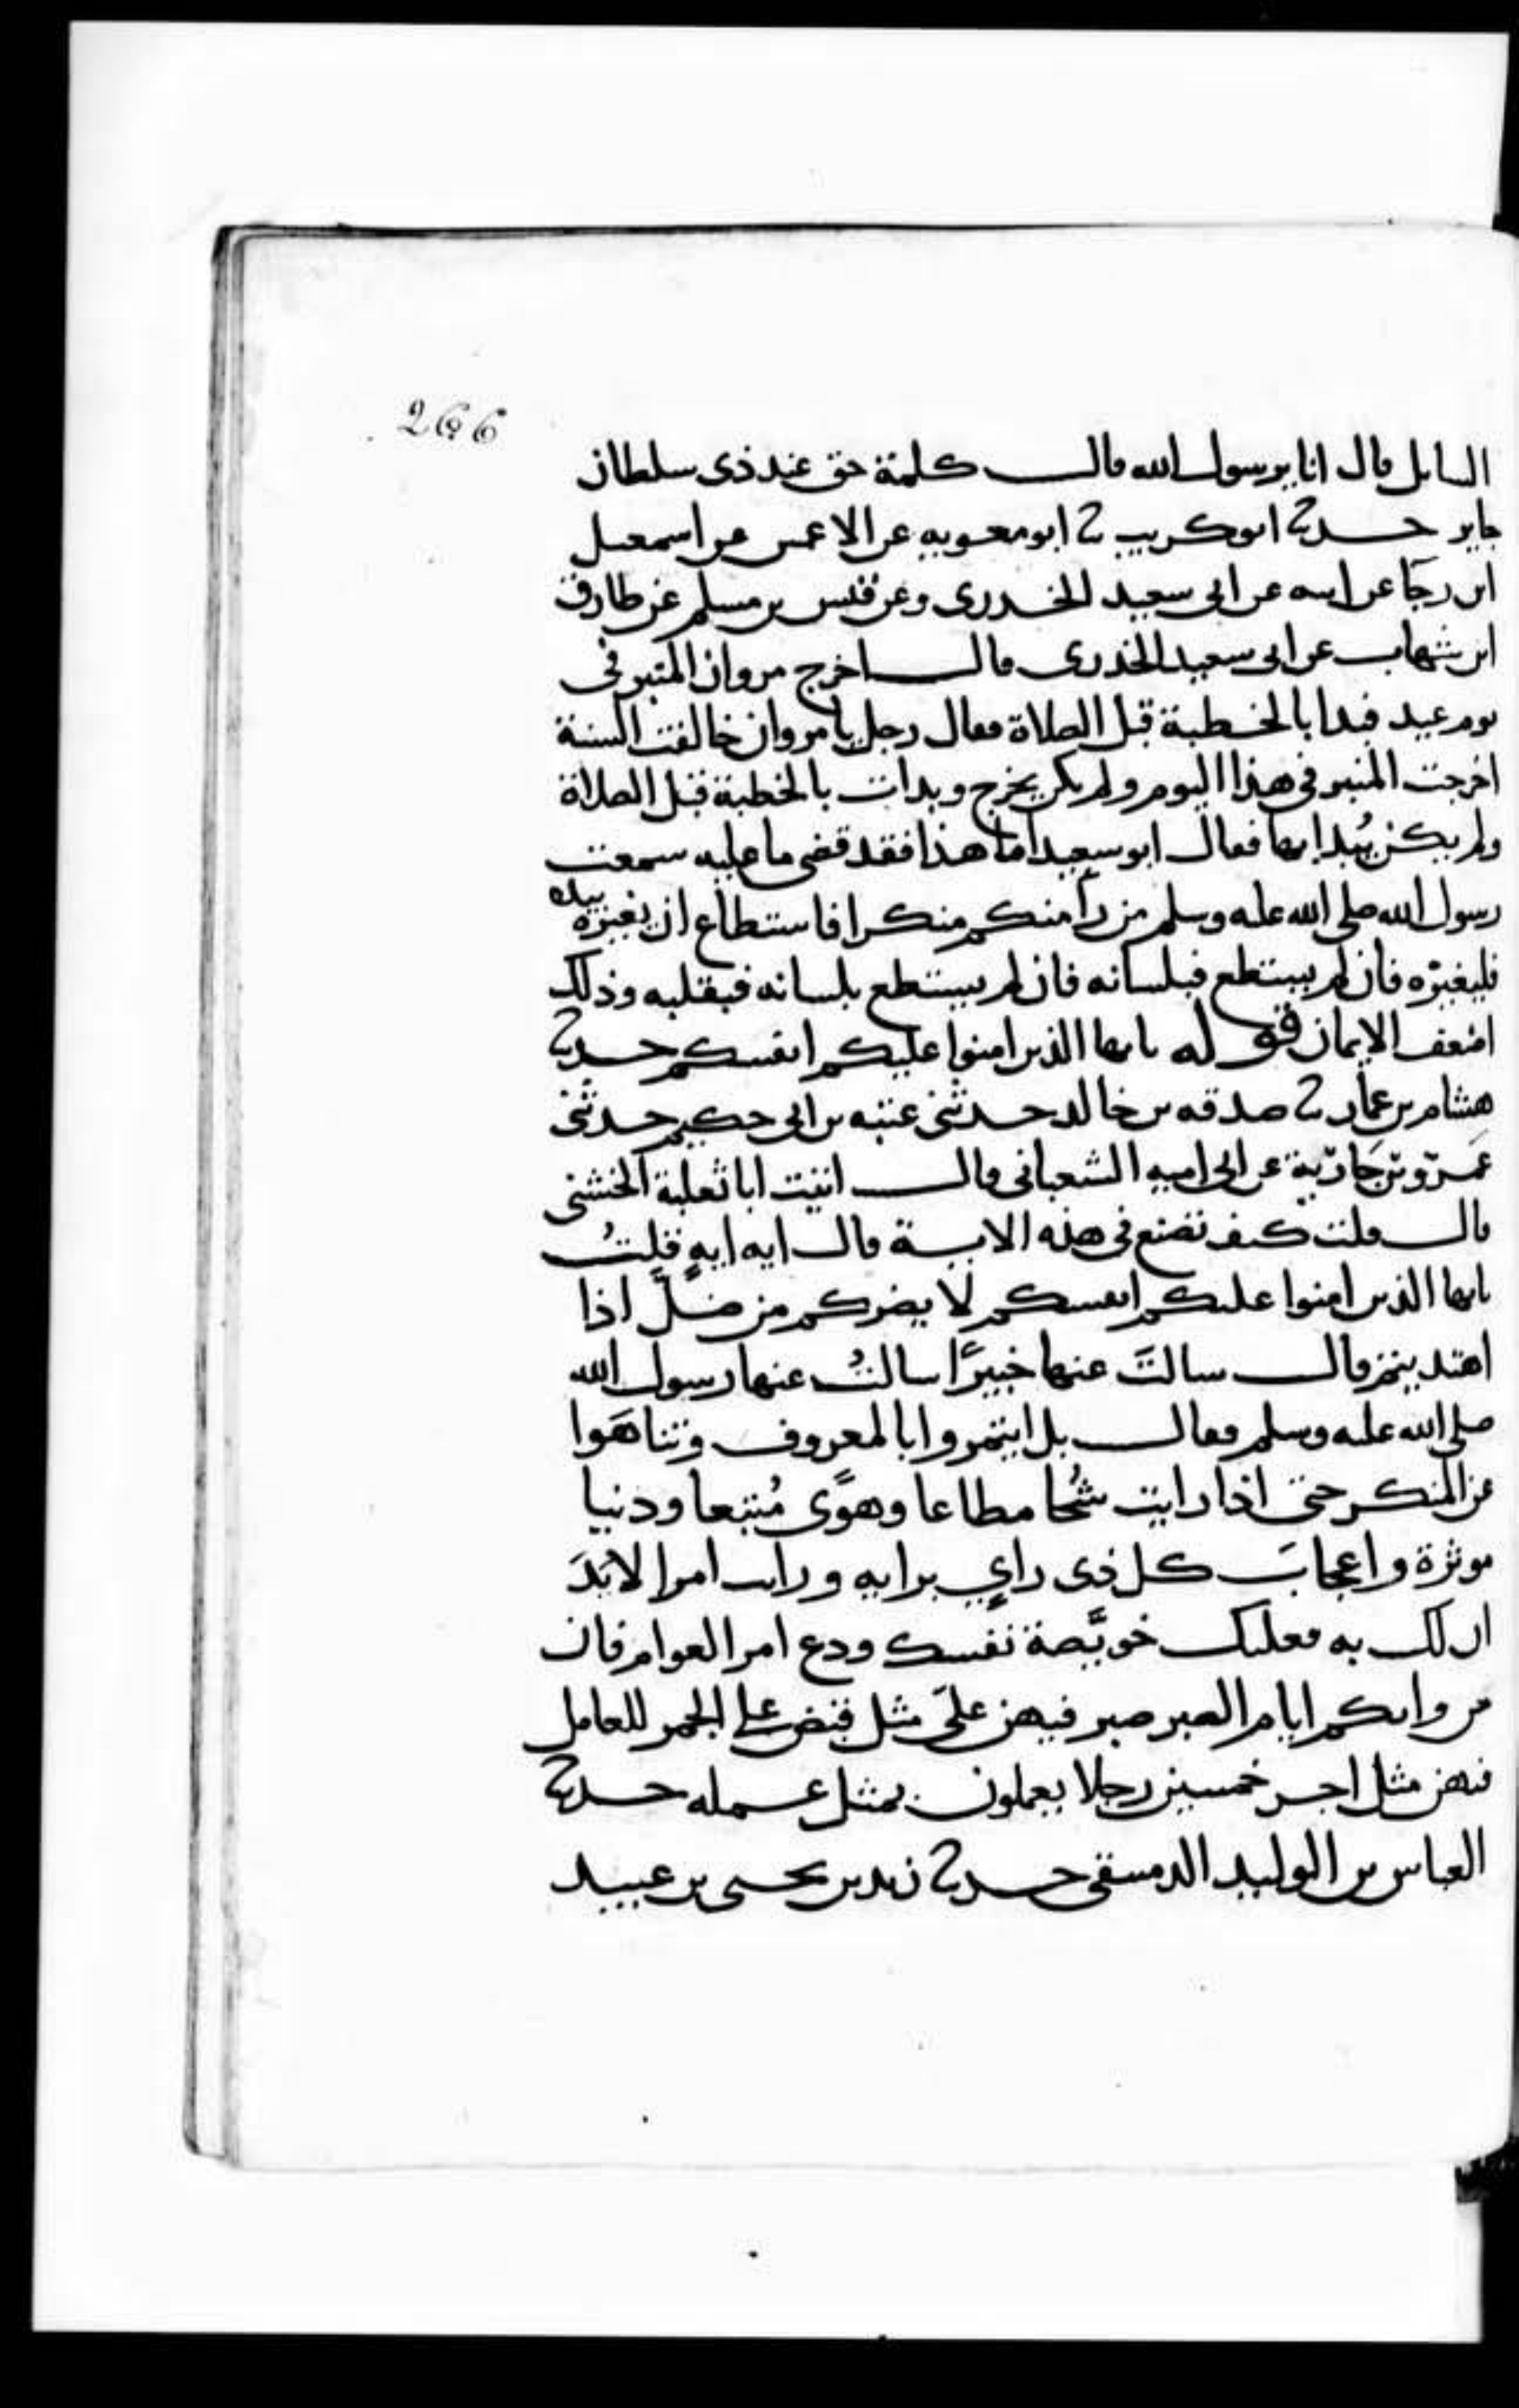 266
السايل قال انا يرسول الله قال كلمة حق عند ذى سلطان
جاير حدثنا ابو كريب ثنا ابو معويه عن الاعمش عن اسمعيل
ابن رجا عن ابيه عن ابى سعيد الخدرى وعن قيس بن مسلم عن طارق
ابن شهاب عن ابى سعيد الخدرى قال اخرج مروان المنبر فى
يوم عيد فبدا بالخطبة قبل الصلاة فقال رجل يا مروان خالفت السنة
اخرجت المنبر فى هذا اليوم ولم يكن يخرج وبدات بالخطبة قبل الصلاة
ولم يكن يُبدا بها فقال ابو سعيد اما هذا فقد قضى ما عليه سمعت
رسول الله صلى الله عليه وسلم من رأ منكم منكرا فاستطاع ان يغيره بيده
فليغيّره فان لم يستطع فبلسانه فان لم يستطع بلسانه فبقلبه وذلك
اضعف الايمان قوله يا يها الذين امنوا عليكم انفسكم حدثنا
هشام بن عمار ثنا صدقه بن خالد حدثنى عتبه بن ابى حكيم حدثنى
عَمرو بن جَارية عن ابى اميه الشعبانى قال اتيت ابا ثعلبة الخشنى
قال قلت كيف تصنع فى هذه الاية قال ايه ايهٍ قلتُ
يايها الذين امنوا عليكم انفسكم لا يضركم من ضلَّ اذا
اهتديتم قال سالتَ عنها خبيرًا سالتُ عنها رسول الله
صلى الله عليه وسلم فقال بل ايتمروا بالمعروف وتناهَوا
عن المنكر حتى اذا رايت شُحا مطاعا وهوًى مُتبعا ودنيا
موثرة واعجابَ كل ذى رايٍ برايه ورايت امرا لا بُدَ
ان لك به فعليك خويَّصة نفسك ودع امر العوام فان
من ورايكم ايام الصبر صبر فيهن علَى مثل قبض على الجمر للعامل
فيهن مثل اجر خمسين رجلا يعملون بمثل عمله حدثنا
العباس بن الوليد الدمشقى حدثنا زيد بن يحيى بن عبيد